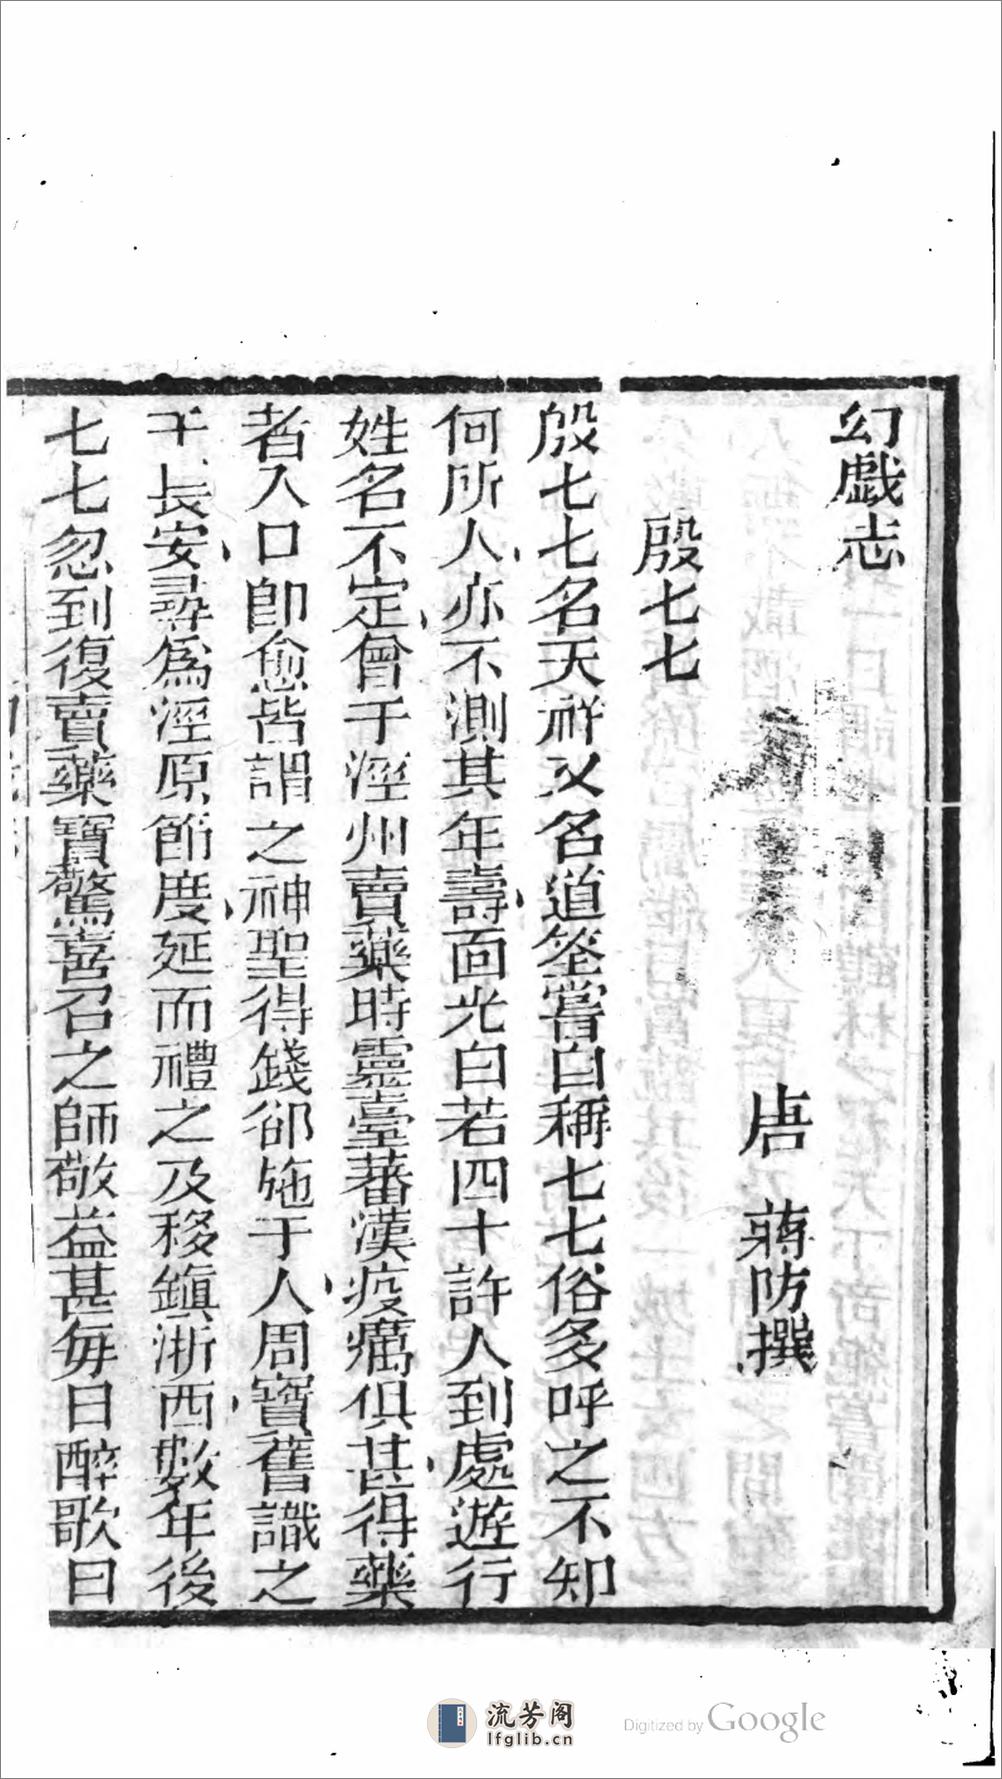 幻戯志
唐　蔣防撰
殷七七
殷七七名天祥又名道筌嘗自稱七七俗多呼之不知
何所人亦不測其年壽面光白若四十許人到處遊行
姓名不定曾于涇州賣藥時靈臺蕃漢疫癘俱甚得藥
者入口卽愈皆謂之神聖得錢卻施于人周寶舊識之
于長安尋爲涇原節度延而禮之及移鎭浙西數年後
七七忽到復賣藥寶驚喜召之師敬益甚每日醉歌曰
流芳阁
lfglib.cn
Digitized by Google